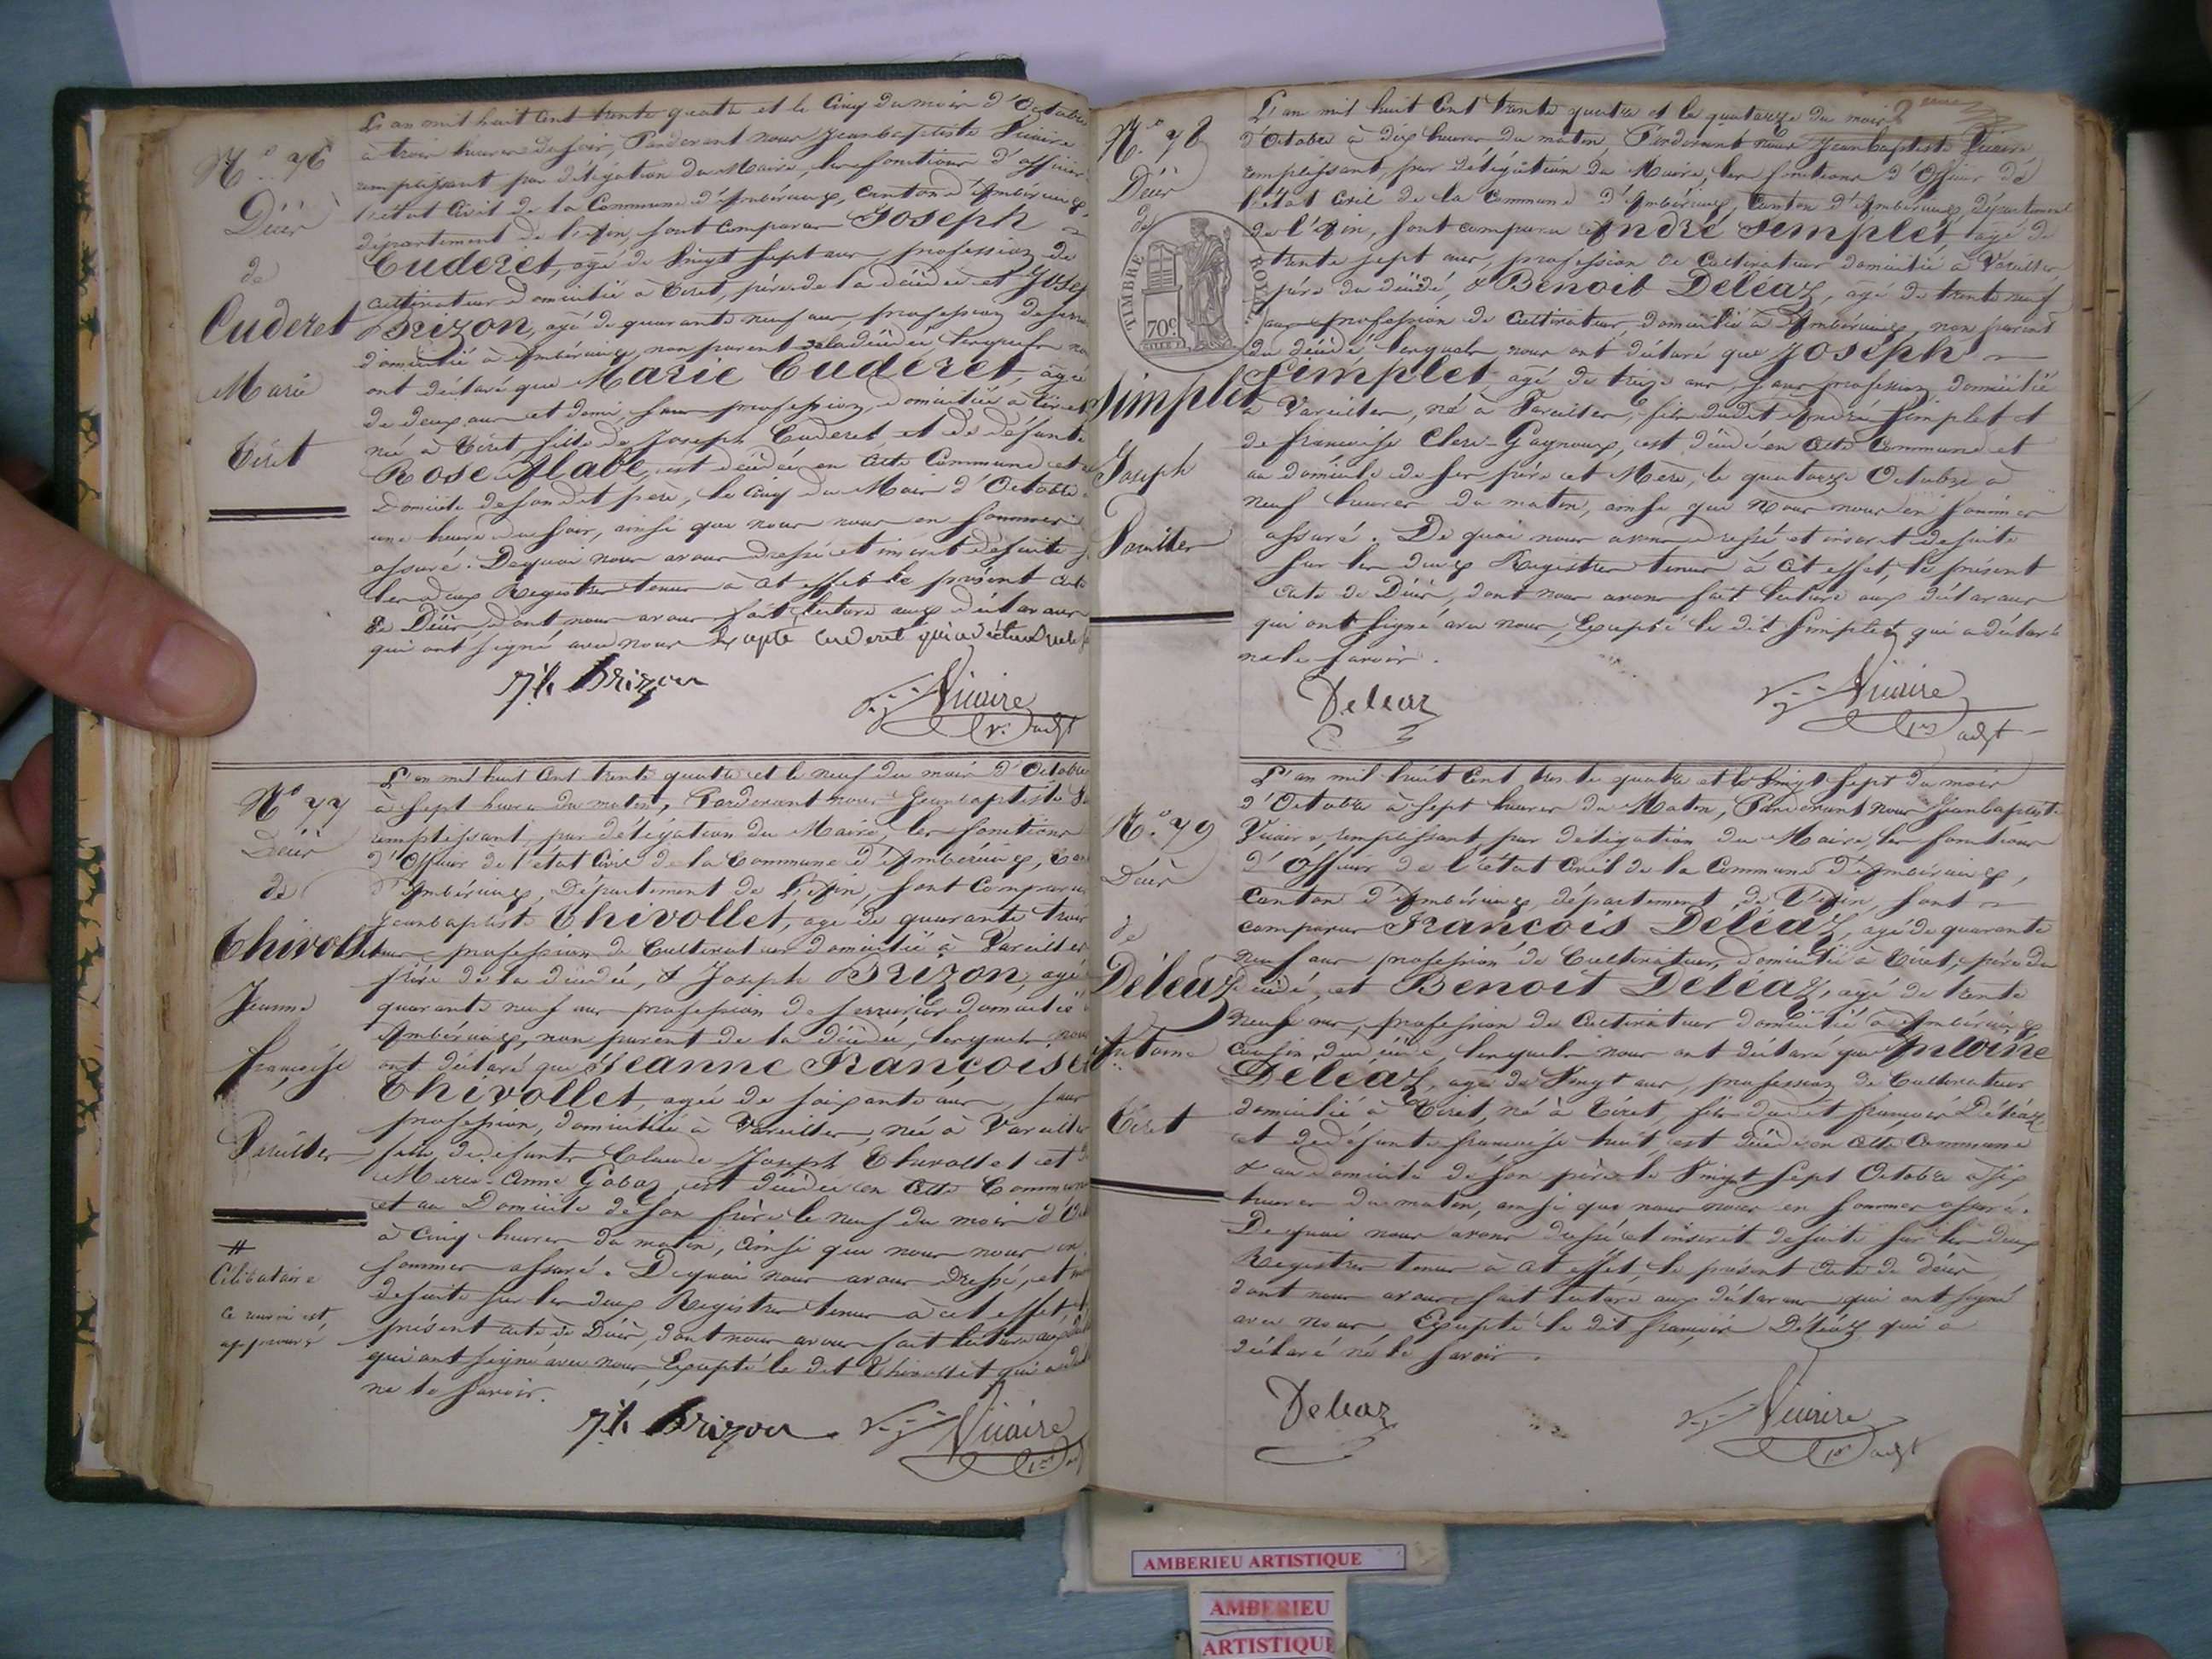 N.o 76
Décès
de
Cuderet
Marie
Tiret
L'an mil huit cent trente quatre et le cinq du mois d'Octobre
à trois heures du soir, Pardevant nous Jeanbaptiste Vicaire
remplissant par délégation du Maire, les fonctions d'officier
de l'état Civil de la Commune d'Ambérieux, canton d'Ambérieux,
département de l'Ain, sont comparus Joseph
Cuderet, agé de vingt sept ans, profession de
cultivateur domicilié à Tiret, père de la décédée et Joseph
Brizon, agé de quarante neuf ans, profession de serru
domicilié à Ambérieux, non parent de la décédée, lesquels no
ont déclaré que Marie Cuderet, agée
de deux ans et demi, sans profession, domiciliée à Tiret
née à Tiret, fille de Joseph Cuderet, et de défunte
Rose Alabe, est décédée en cette Commune et
domicile de son dit père, le cinq du Mois d'Octobre
une heure du soir, ainsi que nous nous en sommes
assuré. De quoi nous avons dressé et inscrit de suite
les deux Registres tenus à cet effet le présent acte
de Décès, dont nous avons fait lecture aux déclarans
qui ont signé avec nous Excepté Cuderet qui a déclaré
Jh Brizon
Vicaire
1er adjt
N.o 77
Décès
de
Thivollet
Jeanne
françoise
Vareilles
#
Célibataire
ce renvoi est
approuvé
L'an mil huit cent trente quatre et le neuf du mois d'Octobre
à sept heures du matin, Pardevant nous Jeanbaptiste
remplissant par délégation du Maire, les fonctions
d'Officier de l'état Civil de la Commune d'Ambérieux,
d'Ambérieux, Département de L'Ain, sont comparus
Jeanbaptiste Thivollet, agé de quarante trois
ans, profession de Cultivateur domicilié à Vareilles
frère de la décédée, & Joseph Brizon, agé
quarante neuf ans profession de serrurier domicilié
Ambérieux, non parent de la décédée, lesquels nous
ont déclaré que Jeanne Françoise
Thivollet, agée de soixante ans, sans
profession, domiciliée à Vareilles, née à Vareilles
fille de défunts Claude Joseph Thivollet et
Marie-Anne Gabaz, est décédée en cette Commune
et au Domicile de son frère le neuf du mois d'
à Cinq heures du matin, ainsi que nous nous en
sommes assuré. De quoi nous avons dressé, et
de suite sur les deux Registres tenus à cet effet
présent acte de Décès, dont nous avons fait lecture aux
qui ont signé avec nous, Excepté le dit Thivollet qui a
ne le savoir.
Jh Brizon
Vicaire
1er
N.o 78
Décès
de
TIMBRE ROYAL
70c
Simplet
Joseph
Vareilles
L'an mil huit cent trente quatre et le quatorze du mois
d'Octobre à dix heures du matin, Pardevant nous Jeanbaptiste Vicaire
remplissant, par délégation du Maire, les fonctions d'Officier de
l'état civil de la Commune d'Ambérieux, Canton d'Ambérieux, département
de l'Ain, sont comparus André Simplet, agé de
trente sept ans, profession de Cultivateur domicilié à Vareilles,
père du décédé, & Benoit Deléaz, agé de trente neuf
ans profession de Cultivateur, domicilié à Ambérieux, non parent
du décédé, lesquels nous ont déclaré que Joseph
Simplet, agé de treize ans, sans profession domicilié
à Vareilles, né à Vareilles, fils dudit André Simplet et
de françoise Clerc-Gagnoux, est décédé en cette Commune et
au domicile de ses père et Mère, le quatorze Octobre à
neuf heures du matin, ainsi que Nous nous en sommes
assuré. De quoi nous avons dressé et inscrit de suite
sur les deux Registres tenus à cet effet, le présent
acte de Décès, dont nous avons fait lecture aux déclarans
qui ont signé avec nous, Excepté le dit Simplet qui a déclaré
ne le savoir.
Deleaz
Vicaire
1er adjt
N.o 79
Décès
de
Deléaz
Antoine
Tiret
L'an mil huit cent, trente quatre et le vingt sept du mois
d'Octobre à sept heures du Matin, Pardevant nous Jeanbaptiste
Vicaire, remplissant, par délégation du Maire, les fonctions
d'Officier de l'état Civil de la Commune d'Ambérieux,
Canton d'Ambérieux département de l'Ain, sont
comparus François Deléaz, agé de quarante
neuf ans profession de Cultivateur, domicilié à Tiret, père du
décédé, et Benoit Deléaz, agé de trente
neuf ans, profession de Cultivateur domicilié à Ambérieux
cousin du décédé, lesquels nous ont déclaré que Antoine
Deléaz, agé de vingt ans, profession de Cultivateur
domicilié à Tiret, né à Tiret, fils dudit françois Deléaz
et de défunte françoise, est décédé en cette Commune
& au domicile de son père le vingt sept Octobre à six
heures du matin, ainsi que nous nous en sommes assuré.
De quoi nous avons dressé et inscrit de suite sur les deux
Registres tenus à cet effet, le présent acte de décès
dont nous avons fait lecture aux déclarans qui ont signé
avec nous, Excepté le dit françois Deléaz qui a
déclaré ne le savoir.
Deleaz
Vicaire
1er adjt
AMBERIEU ARTISTIQUE
AMBERIEU
ARTISTIQUE